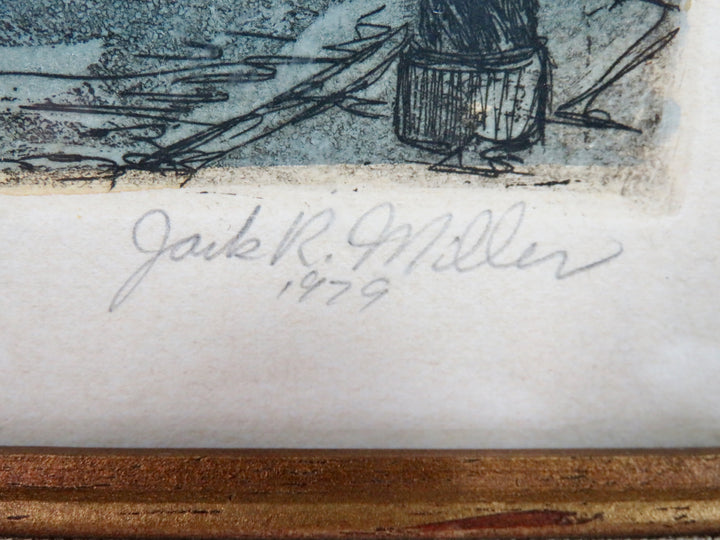 Jack R. Miller
1979